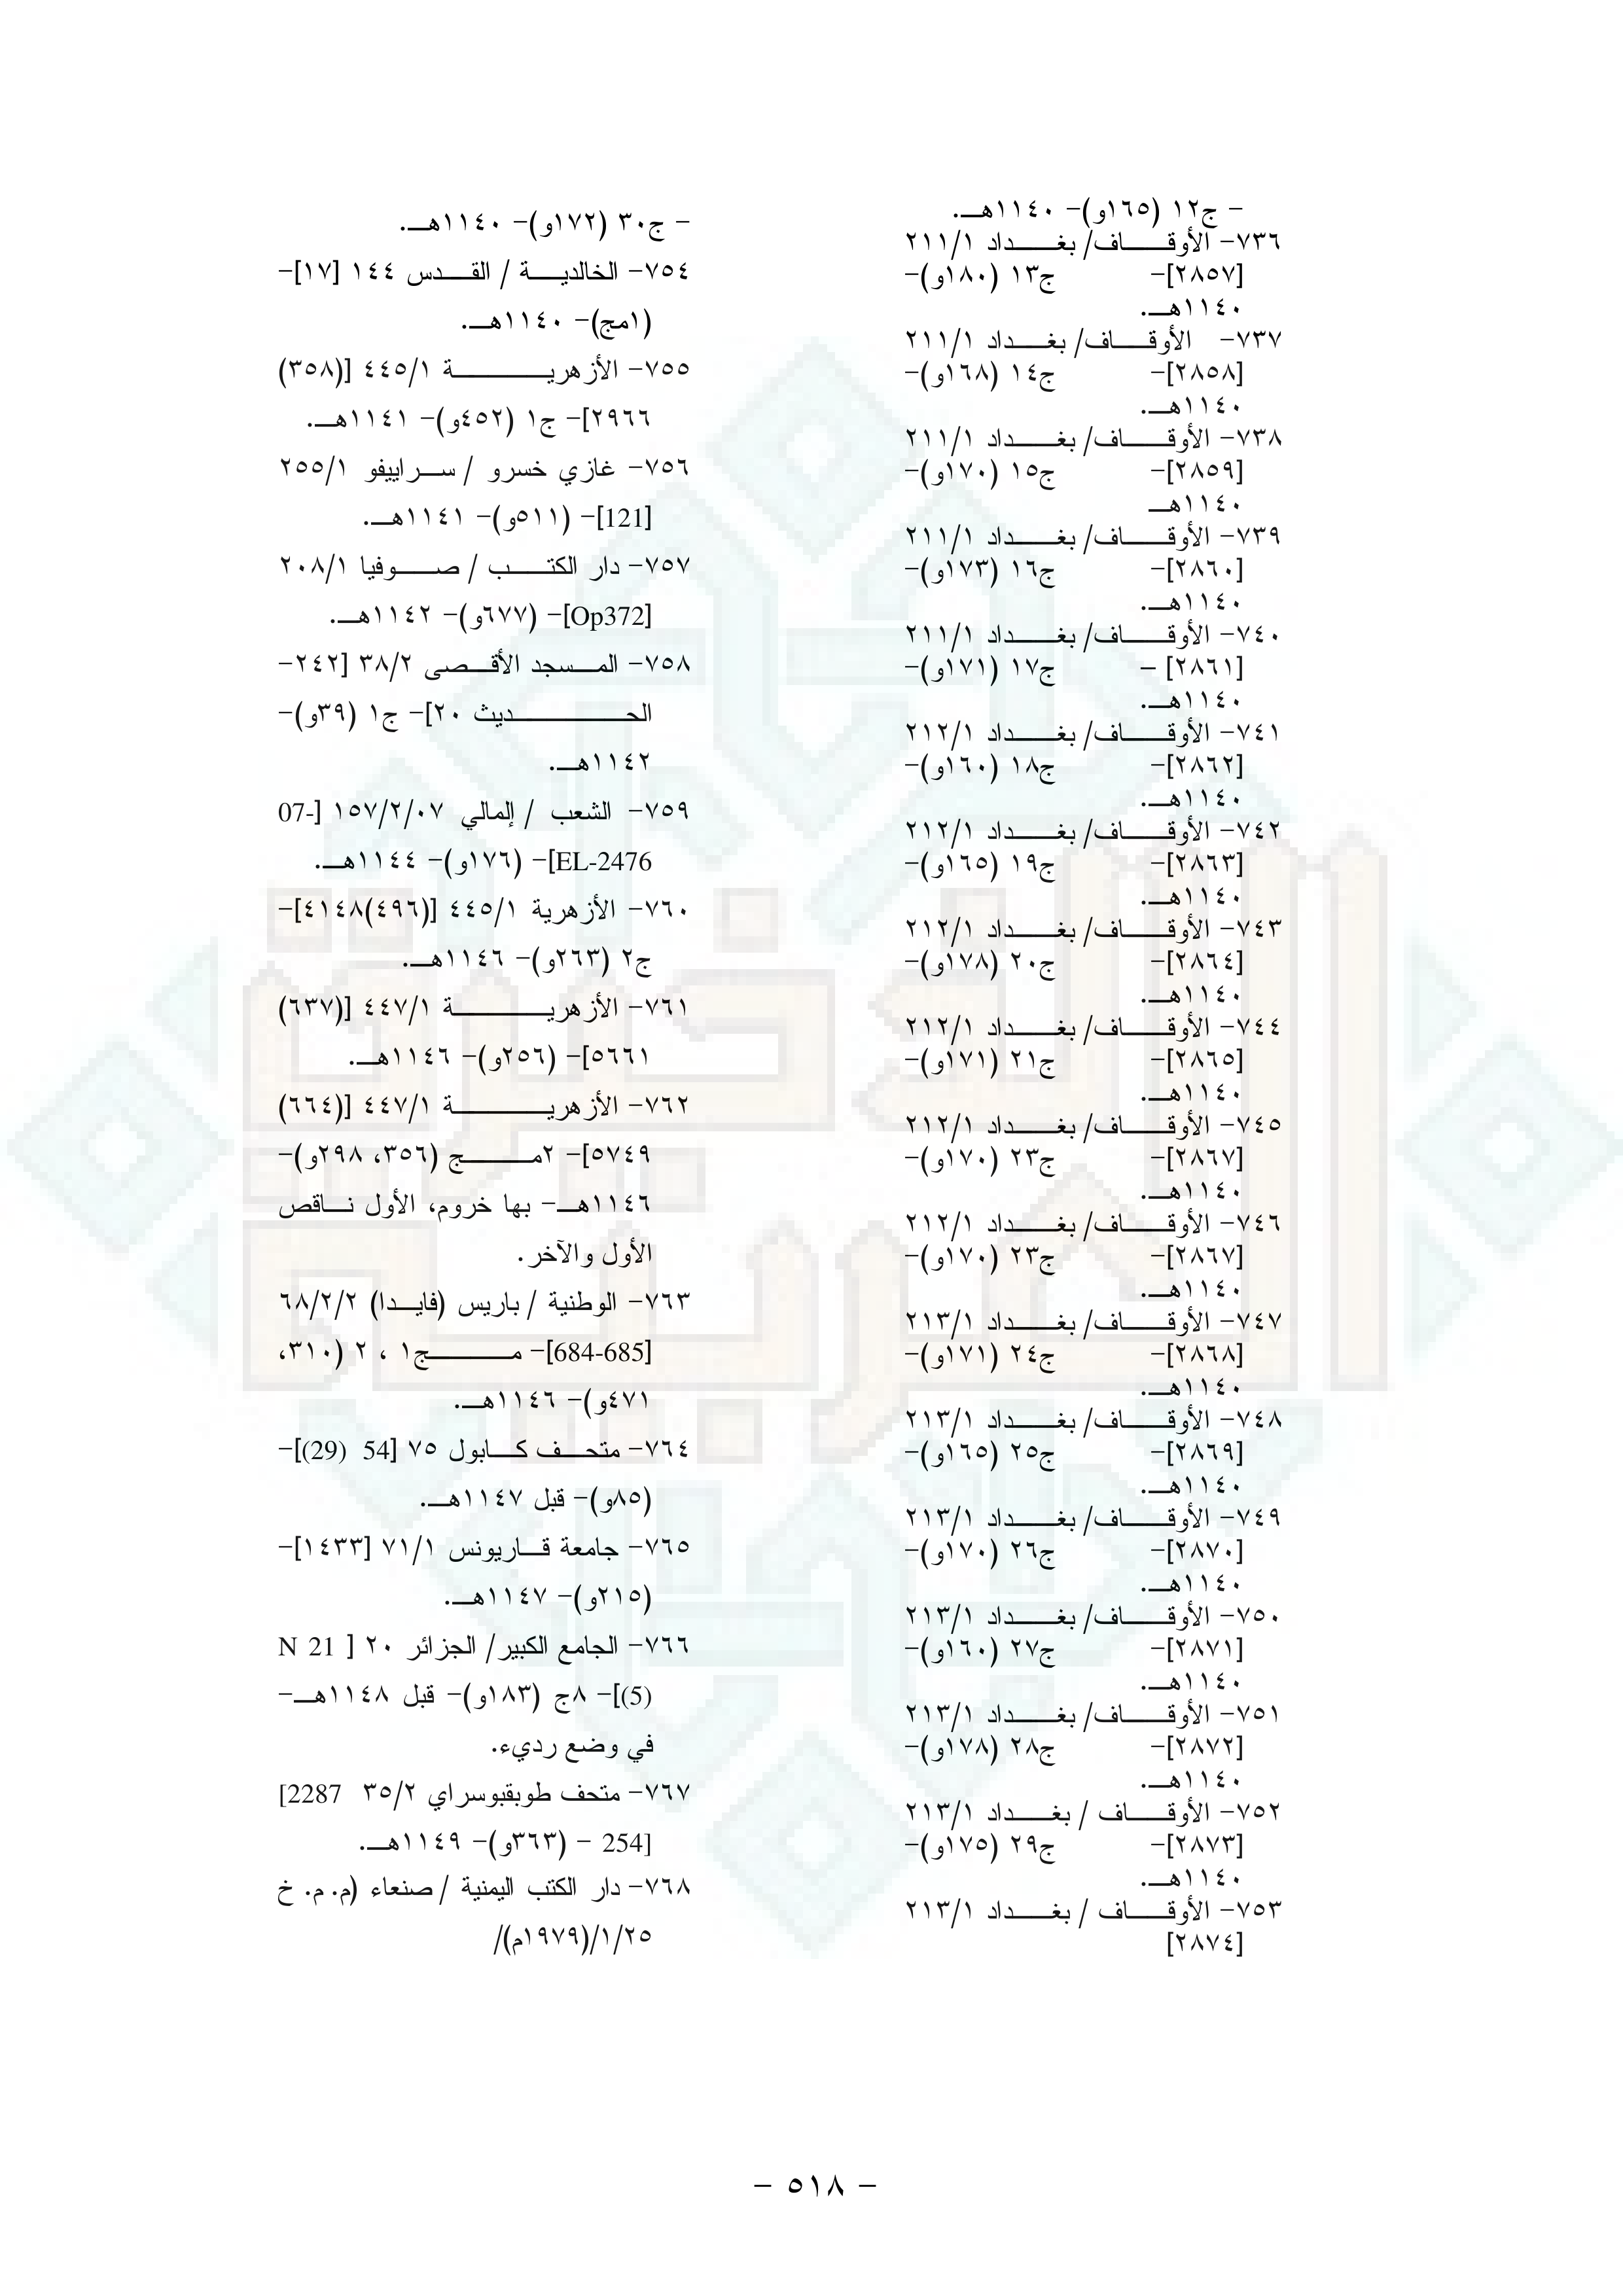 - ج١٢ (١٦٥و)- ١١٤٠هـ.
٧٣٦- الأوقاف/ بغداد ٢١١/١
[٢٨٥٧]- ج١٣ (١٨٠و)-
١١٤٠هـ.
٧٣٧- الأوقاف/ بغداد ٢١١/١
[٢٨٥٨]- ج١٤ (١٦٨و)-
١١٤٠هـ.
٧٣٨- الأوقاف/ بغداد ٢١١/١
[٢٨٥٩]- ج١٥ (١٧٠و)-
١١٤٠هـ
٧٣٩- الأوقاف/ بغداد ٢١١/١
[٢٨٦٠]- ج١٦ (١٧٣و)-
١١٤٠هـ.
٧٤٠- الأوقاف/ بغداد ٢١١/١
[٢٨٦١] - ج١٧ (١٧١و)-
١١٤٠هـ.
٧٤١- الأوقاف/ بغداد ٢١٢/١
[٢٨٦٢]- ج١٨ (١٦٠و)-
١١٤٠هـ.
٧٤٢- الأوقاف/ بغداد ٢١٢/١
[٢٨٦٣]- ج١٩ (١٦٥و)-
١١٤٠هـ.
٧٤٣- الأوقاف/ بغداد ٢١٢/١
[٢٨٦٤]- ج٢٠ (١٧٨و)-
١١٤٠هـ.
٧٤٤- الأوقاف/ بغداد ٢١٢/١
[٢٨٦٥]- ج٢١ (١٧١و)-
١١٤٠هـ.
٧٤٥- الأوقاف/ بغداد ٢١٢/١
[٢٨٦٧]- ج٢٣ (١٧٠و)-
١١٤٠هـ.
٧٤٦- الأوقاف/ بغداد ٢١٢/١
[٢٨٦٧]- ج٢٣ (١٧٠و)-
١١٤٠هـ.
٧٤٧- الأوقاف/ بغداد ٢١٣/١
[٢٨٦٨]- ج٢٤ (١٧١و)-
١١٤٠هـ.
٧٤٨- الأوقاف/ بغداد ٢١٣/١
[٢٨٦٩]- ج٢٥ (١٦٥و)-
١١٤٠هـ.
٧٤٩- الأوقاف/ بغداد ٢١٣/١
[٢٨٧٠]- ج٢٦ (١٧٠و)-
١١٤٠هـ.
٧٥٠- الأوقاف/ بغداد ٢١٣/١
[٢٨٧١]- ج٢٧ (١٦٠و)-
١١٤٠هـ.
٧٥١- الأوقاف/ بغداد ٢١٣/١
[٢٨٧٢]- ج٢٨ (١٧٨و)-
١١٤٠هـ.
٧٥٢- الأوقاف / بغداد ٢١٣/١
[٢٨٧٣]- ج٢٩ (١٧٥و)-
١١٤٠هـ.
٧٥٣- الأوقاف / بغداد ٢١٣/١
[٢٨٧٤]
- ج٣٠ (١٧٢و)- ١١٤٠هـ.
٧٥٤- الخالدية / القدس ١٤٤ [١٧]-
(١مج)- ١١٤٠هـ.
٧٥٥- الأزهرية ٤٤٥/١ [(٣٥٨)
٢٩٦٦]- ج١ (٤٥٢و)- ١١٤١هـ.
٧٥٦- غازي خسرو / سراييفو ٢٥٥/١
[121]- (٥١١و)- ١١٤١هـ.
٧٥٧- دار الكتب / صوفيا ٢٠٨/١
[Op372]- (٦٧٧و)- ١١٤٢هـ.
٧٥٨- المسجد الأقصى ٣٨/٢ [٢٤٢-
الحديث ٢٠]- ج١ (٣٩و)-
١١٤٢هـ.
٧٥٩- الشعب / إلمالي ١٥٧/٢/٠٧ [07-
EL-2476]- (١٧٦و)- ١١٤٤هـ.
٧٦٠- الأزهرية ٤٤٥/١ [(٤٩٦)٤١٤٨]-
ج٢ (٢٦٣و)- ١١٤٦هـ.
٧٦١- الأزهرية ٤٤٧/١ [(٦٣٧)
٥٦٦١]- (٢٥٦و)- ١١٤٦هـ.
٧٦٢- الأزهرية ٤٤٧/١ [(٦٦٤)
٥٧٤٩]- ٢مج (٣٥٦، ٢٩٨و)-
١١٤٦هـ- بها خروم، الأول ناقص
الأول والآخر.
٧٦٣- الوطنية / باريس (فايدا) ٦٨/٢/٢
[684-685]- مج١ ، ٢ (٣١٠،
٤٧١و)- ١١٤٦هـ.
٧٦٤- متحف كابول ٧٥ [54 (29)]-
(٨٥و)- قبل ١١٤٧هـ.
٧٦٥- جامعة قاريونس ٧١/١ [١٤٣٣]-
(٢١٥و)- ١١٤٧هـ.
٧٦٦- الجامع الكبير/ الجزائر ٢٠ [ N 21
(5)]- ٨ج (١٨٣و)- قبل ١١٤٨هـ-
في وضع رديء.
٧٦٧- متحف طوبقبوسراي ٣٥/٢ [2287
254] - (٣٦٣و)- ١١٤٩هـ.
٧٦٨- دار الكتب اليمنية / صنعاء (م. م. خ
١/٢٥/(١٩٧٩م)/
- ٥١٨ -